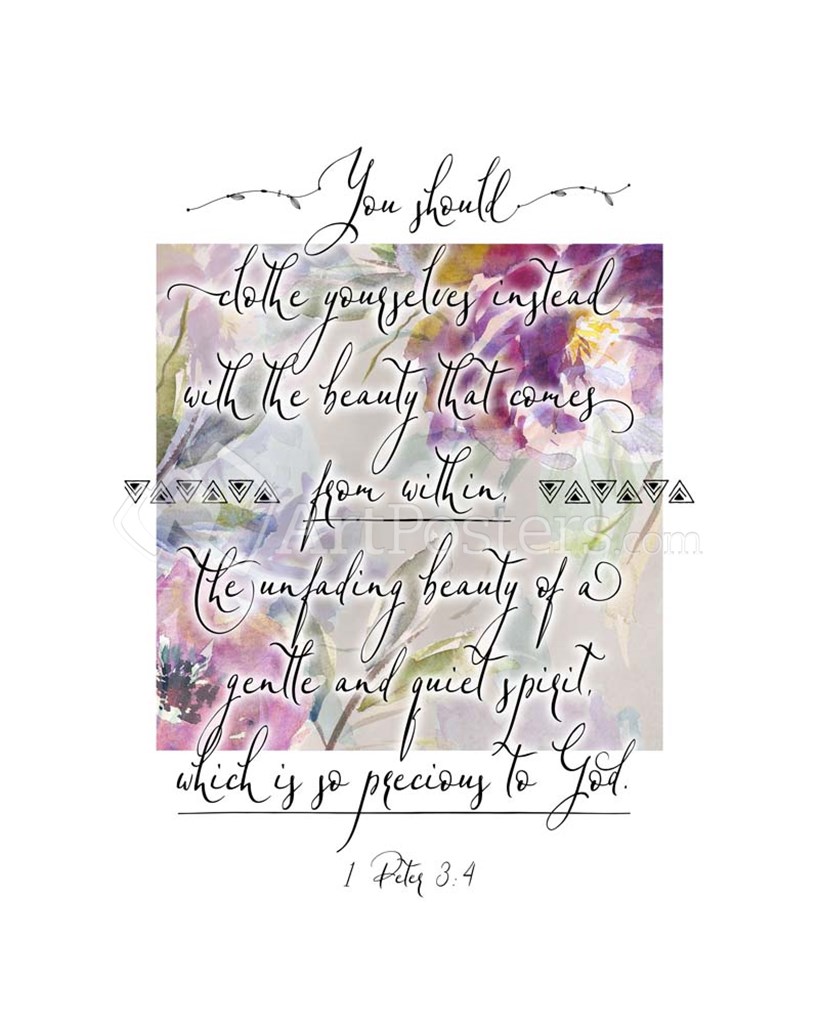 You should
clothe yourselves instead
with the beauty that comes
from within,
the unfading beauty of a
gentle and quiet spirit,
which is so precious to God.
1 Peter 3:4
ArtPosters.com